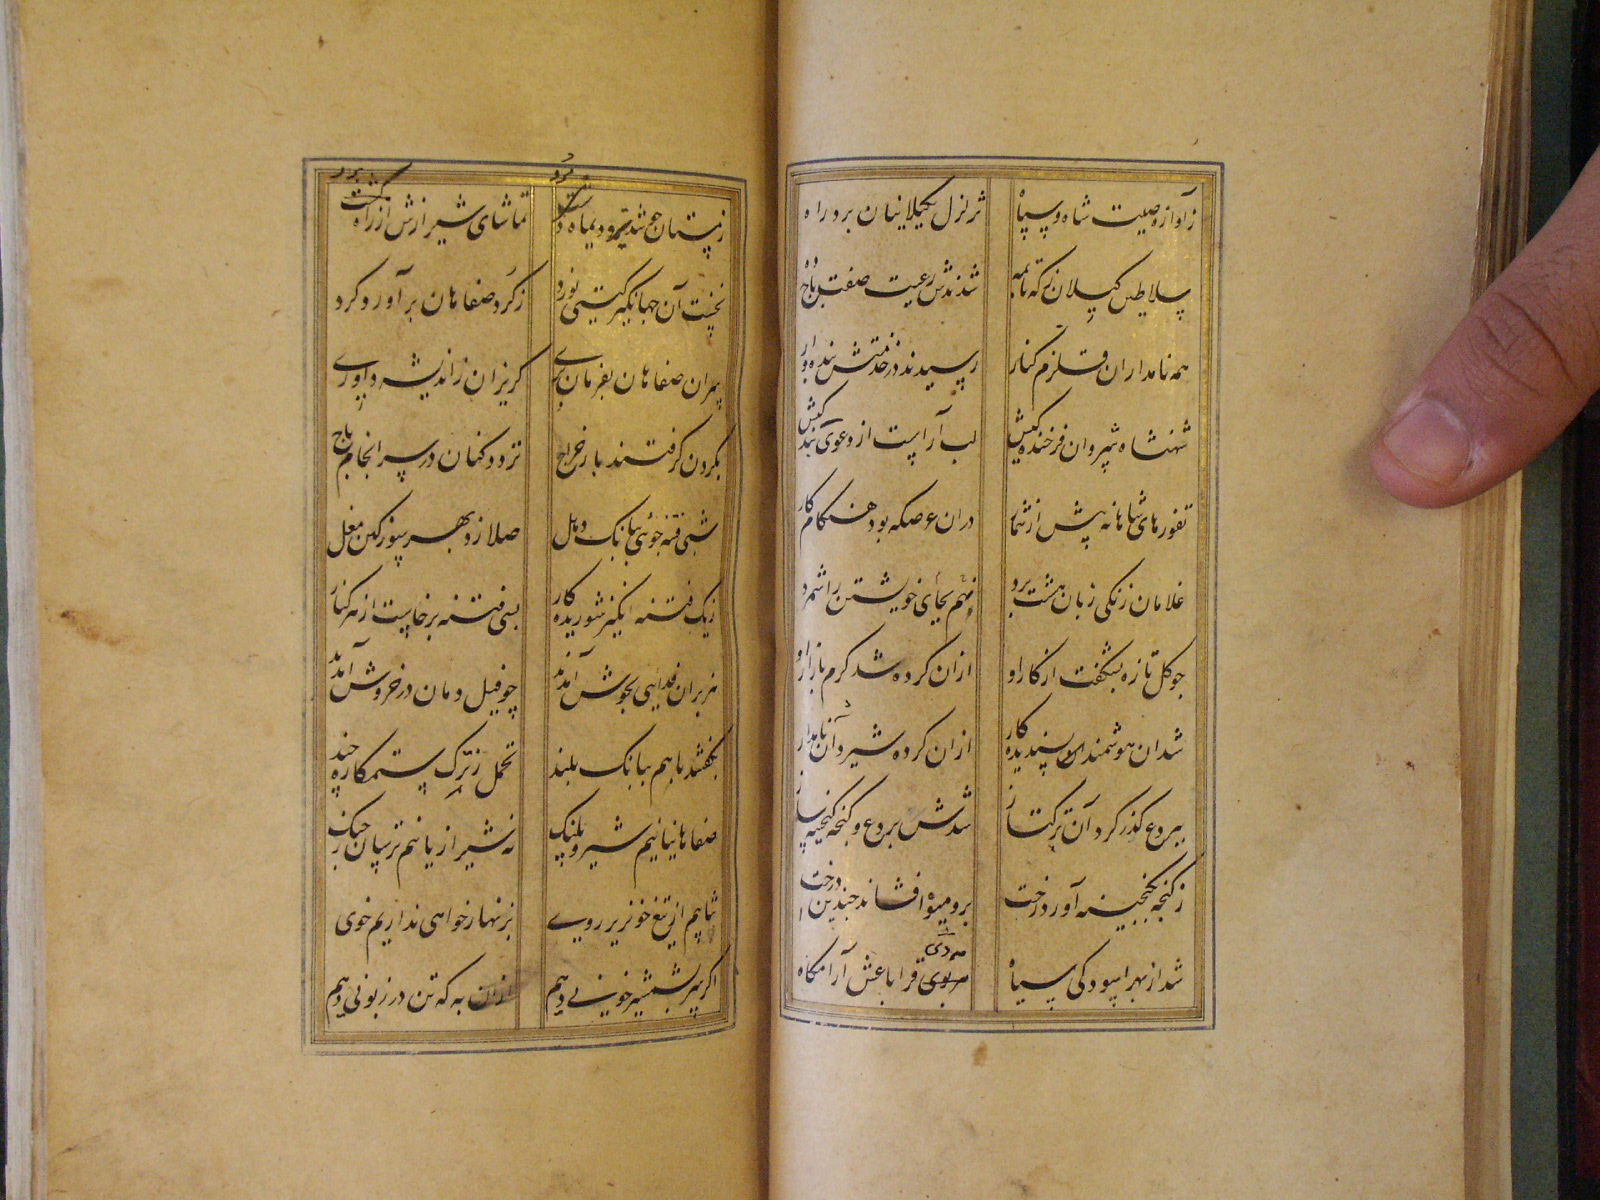 زآوازه صیت شاه و سپاه
تزلزل بگیلانیان برد راه
سلاطین گیلان نه که نامه
شدندش رعیت صفت باج ده
همه نامداران قلزم کنار
رسیدند در خدمتش بنده وار
شهنشاه شیروان فرخنده کیش
لب آراست از دعوی بندگیش
تقوزهای شاهانه بیش از شمار
دران عرصه که بود هنگام کار
غلامان زنگی زبان هشت برد
نهم بجای خویشتن را شمرد
چو گل تازه بشکفت از کار او
ازان کرده شد گرم بازار او
شد ان هوشمند پسندیده کار
ازان کرده شیروان نامدار
ببردع گذر کرد آن ترکتاز
شدش بردع و گنجه گنجینه ساز
ز گنجه بگنجینه آورد رخت
برو میوه افشاند چندین درخت
شد از بهر اسودگی سپاه
سردی قراباغش آرامگاه
زمستان چو شد و دیماه
تماشای شیرازش از راه
نخست آن جهانگیر گیتی نورد
ز گرد صفاهان برآورد گرد
سران صفاهان بفرمان بری
گریزان ز اندیشه داوری
بگردن گرفتند بار خراج
تردد کنان در سرانجام باج
شبی فتنه جوئی ببانک دهل
صلا زد بهر سو
ز یک فتنه انگیز شوریده کار
بسی فتنه برخاست از هر کنار
هزبران فدایی بجوش آمدند
چو فیل دمان در خروش آمدند
بگفتند با هم ببانک بلند
تحمل ز ترک ستمکاره چند
صفاهانیانیم شیر و پلنک
نه شیرازیانیم ترسان ز جنک
نتابیم از تیغ خونریز روی
بزنهار خواهی نداریم خوی
اگر سر بشمشیر خونی دهیم
ازان به که تن در زبونی دهیم